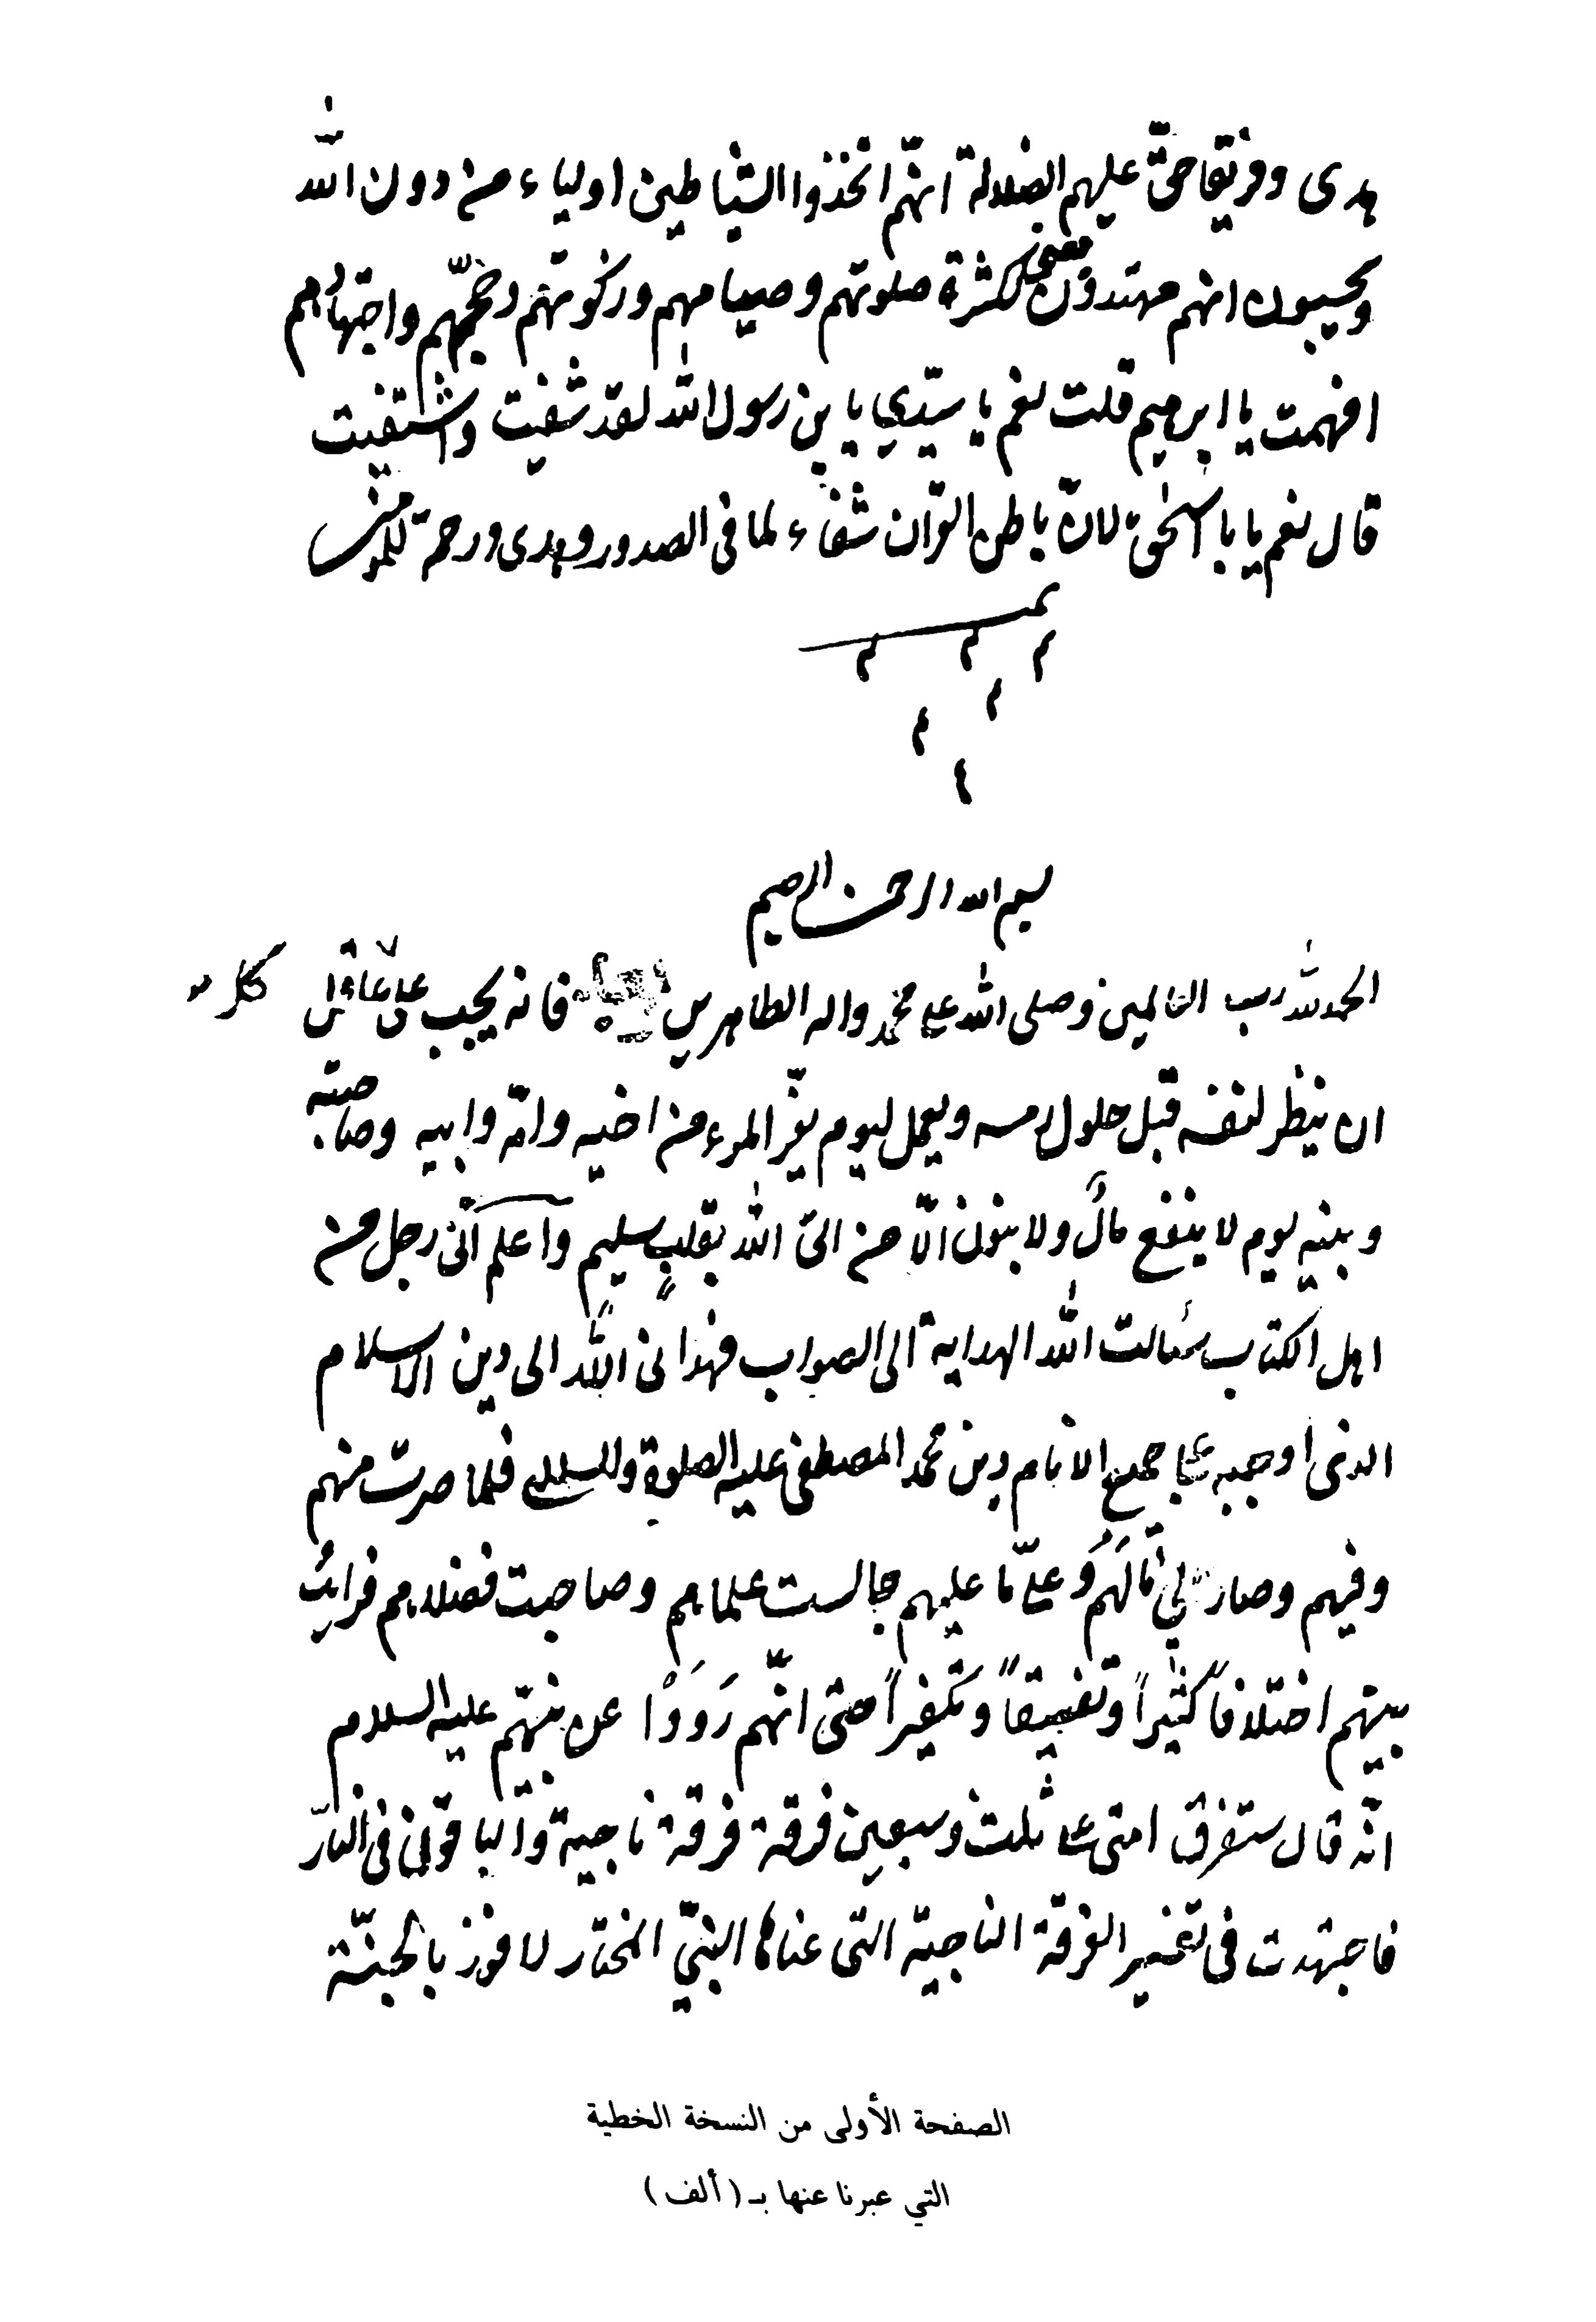 هدى وفريقا حقّ عليهم الضلالة انّهم اتخذوا الشياطين اولياء من دون الله
ويحسبون انهم مهتدون لكثرة صلوتهم وصيامهم وزكوتهم وحجّهم واجتهادهم
افهمت يا ابرهيم قلت نعم يا سيّدي يا بن رسول الله لقد شفيت واشتفيت
قال نعم يا با اسحق لانّ باطن القرآن شفاء لما فى الصدور وهدى ورحمة للمؤمنين
تمت
م م م
م
م
م
بسم الله الرحمن الرحيم
الحمد لله رب العالمين وصلى الله على محمد واله الطاهرين فانه يجب على كل عاقل
ان ينظر لنفسه قبل حلول رمسه ويعمل ليوم يفرّ المرء من اخيه وامّه وابيه وصاحبته
وبنيه يوم لا ينفع مالٌ ولا بنون الّا من اتى الله بقلبٍ سليم واعلم انّى رجل من
اهل الكتاب سئالت الله الهداية الى الصواب فهدانى الله الى دين الاسلام
الذى اوجبه على جميع الانام دين محمد المصطفى عليه الصلوة والسلام فلما صرت منهم
وفيهم وصار لي مالَهُم وعلىّ ما عليهم جالست علماهم وصاحبت فضلاهم فرايت
بينهم اختلافاً كثيراً وتفسيقاً وتكفيراً حتى انّهم رَوَوْا عن نبيّهم عليه السلام
انّه قال ستفرق امتى على ثلث وسبعين فرقة فرقة ناجية والباقون فى النار
فاجتهدت فى تفسير الفرقة الناجيّة التى عناها النبيّ المختار لافوز بالجنّة
الصفحة الأولى من النسخة الخطية
التي عبرنا عنها بـ (ألف)